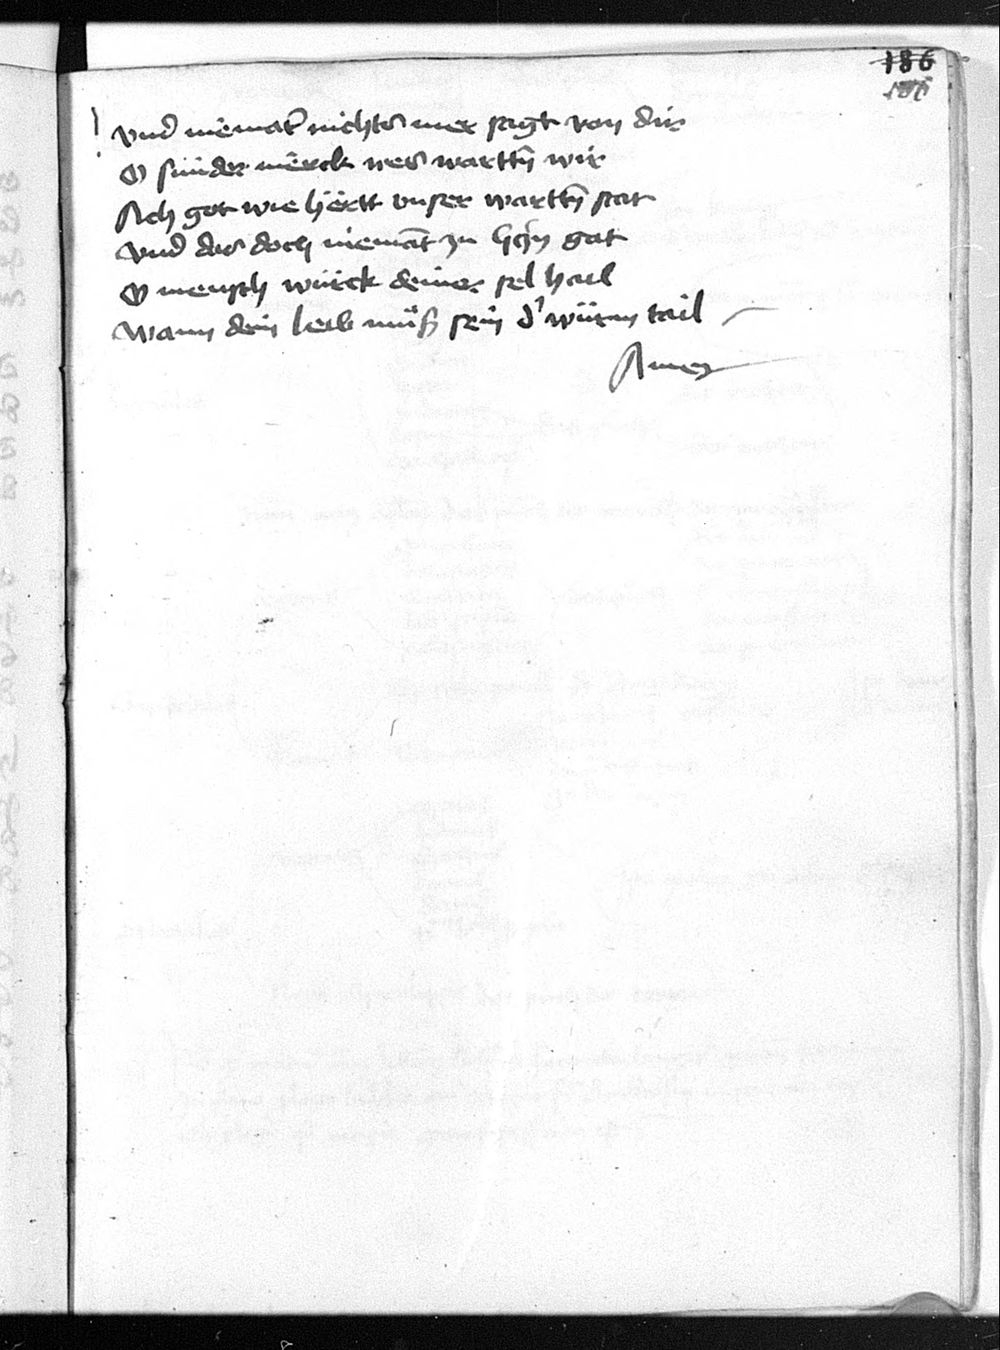 186
Vnd niemat nichts mer sagt von dir
O sünder merck wes warttn̄ wir
Ach got wie hertt vnser warttn̄ stat
Vnd das doch niemāt zu gat
O mensch würck deiner sel hail
Wann dein leib müß sein d' würm tail
Amen